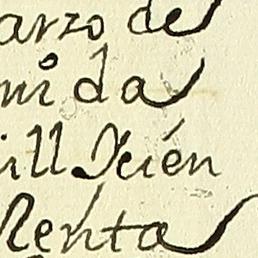 arzo de
mida
ill Jcién
Renta